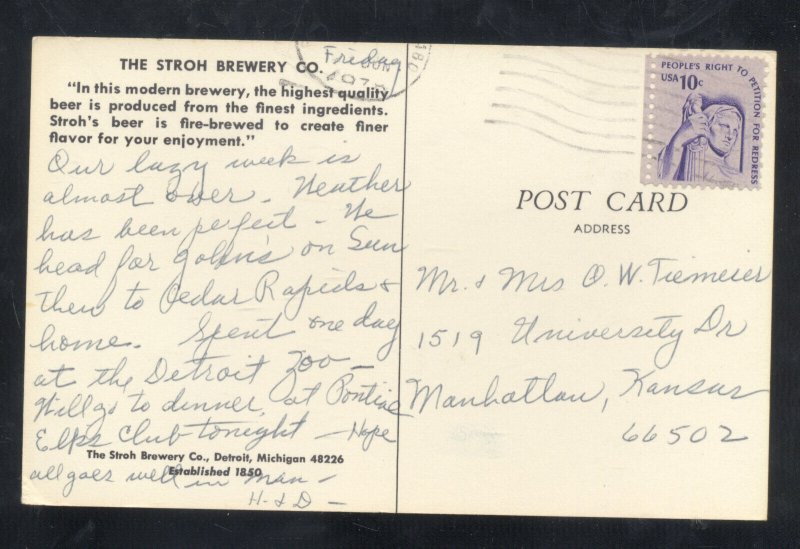 THE STROH BREWERY CO.
Friday
"In this modern brewery, the highest quality
beer is produced from the finest ingredients.
Stroh's beer is fire-brewed to create finer
flavor for your enjoyment."
Our lazy week is
almost over. Weather
has been perfect - We
head for John's on Sun
then to Cedar Rapids &
home. Spent one day
at the Detroit Zoo -
Will go to dinner at Pontiac
Elks Club tonight - Hope
The Stroh Brewery Co., Detroit, Michigan 48226
Established 1850
all goes well in Man -
H & D -
JUN
PEOPLE'S RIGHT TO PETITION FOR REDRESS
USA 10c
POST CARD
ADDRESS
Mr. & Mrs O. W. Tiemeier
1519 University Dr
Manhattan, Kansas
66502